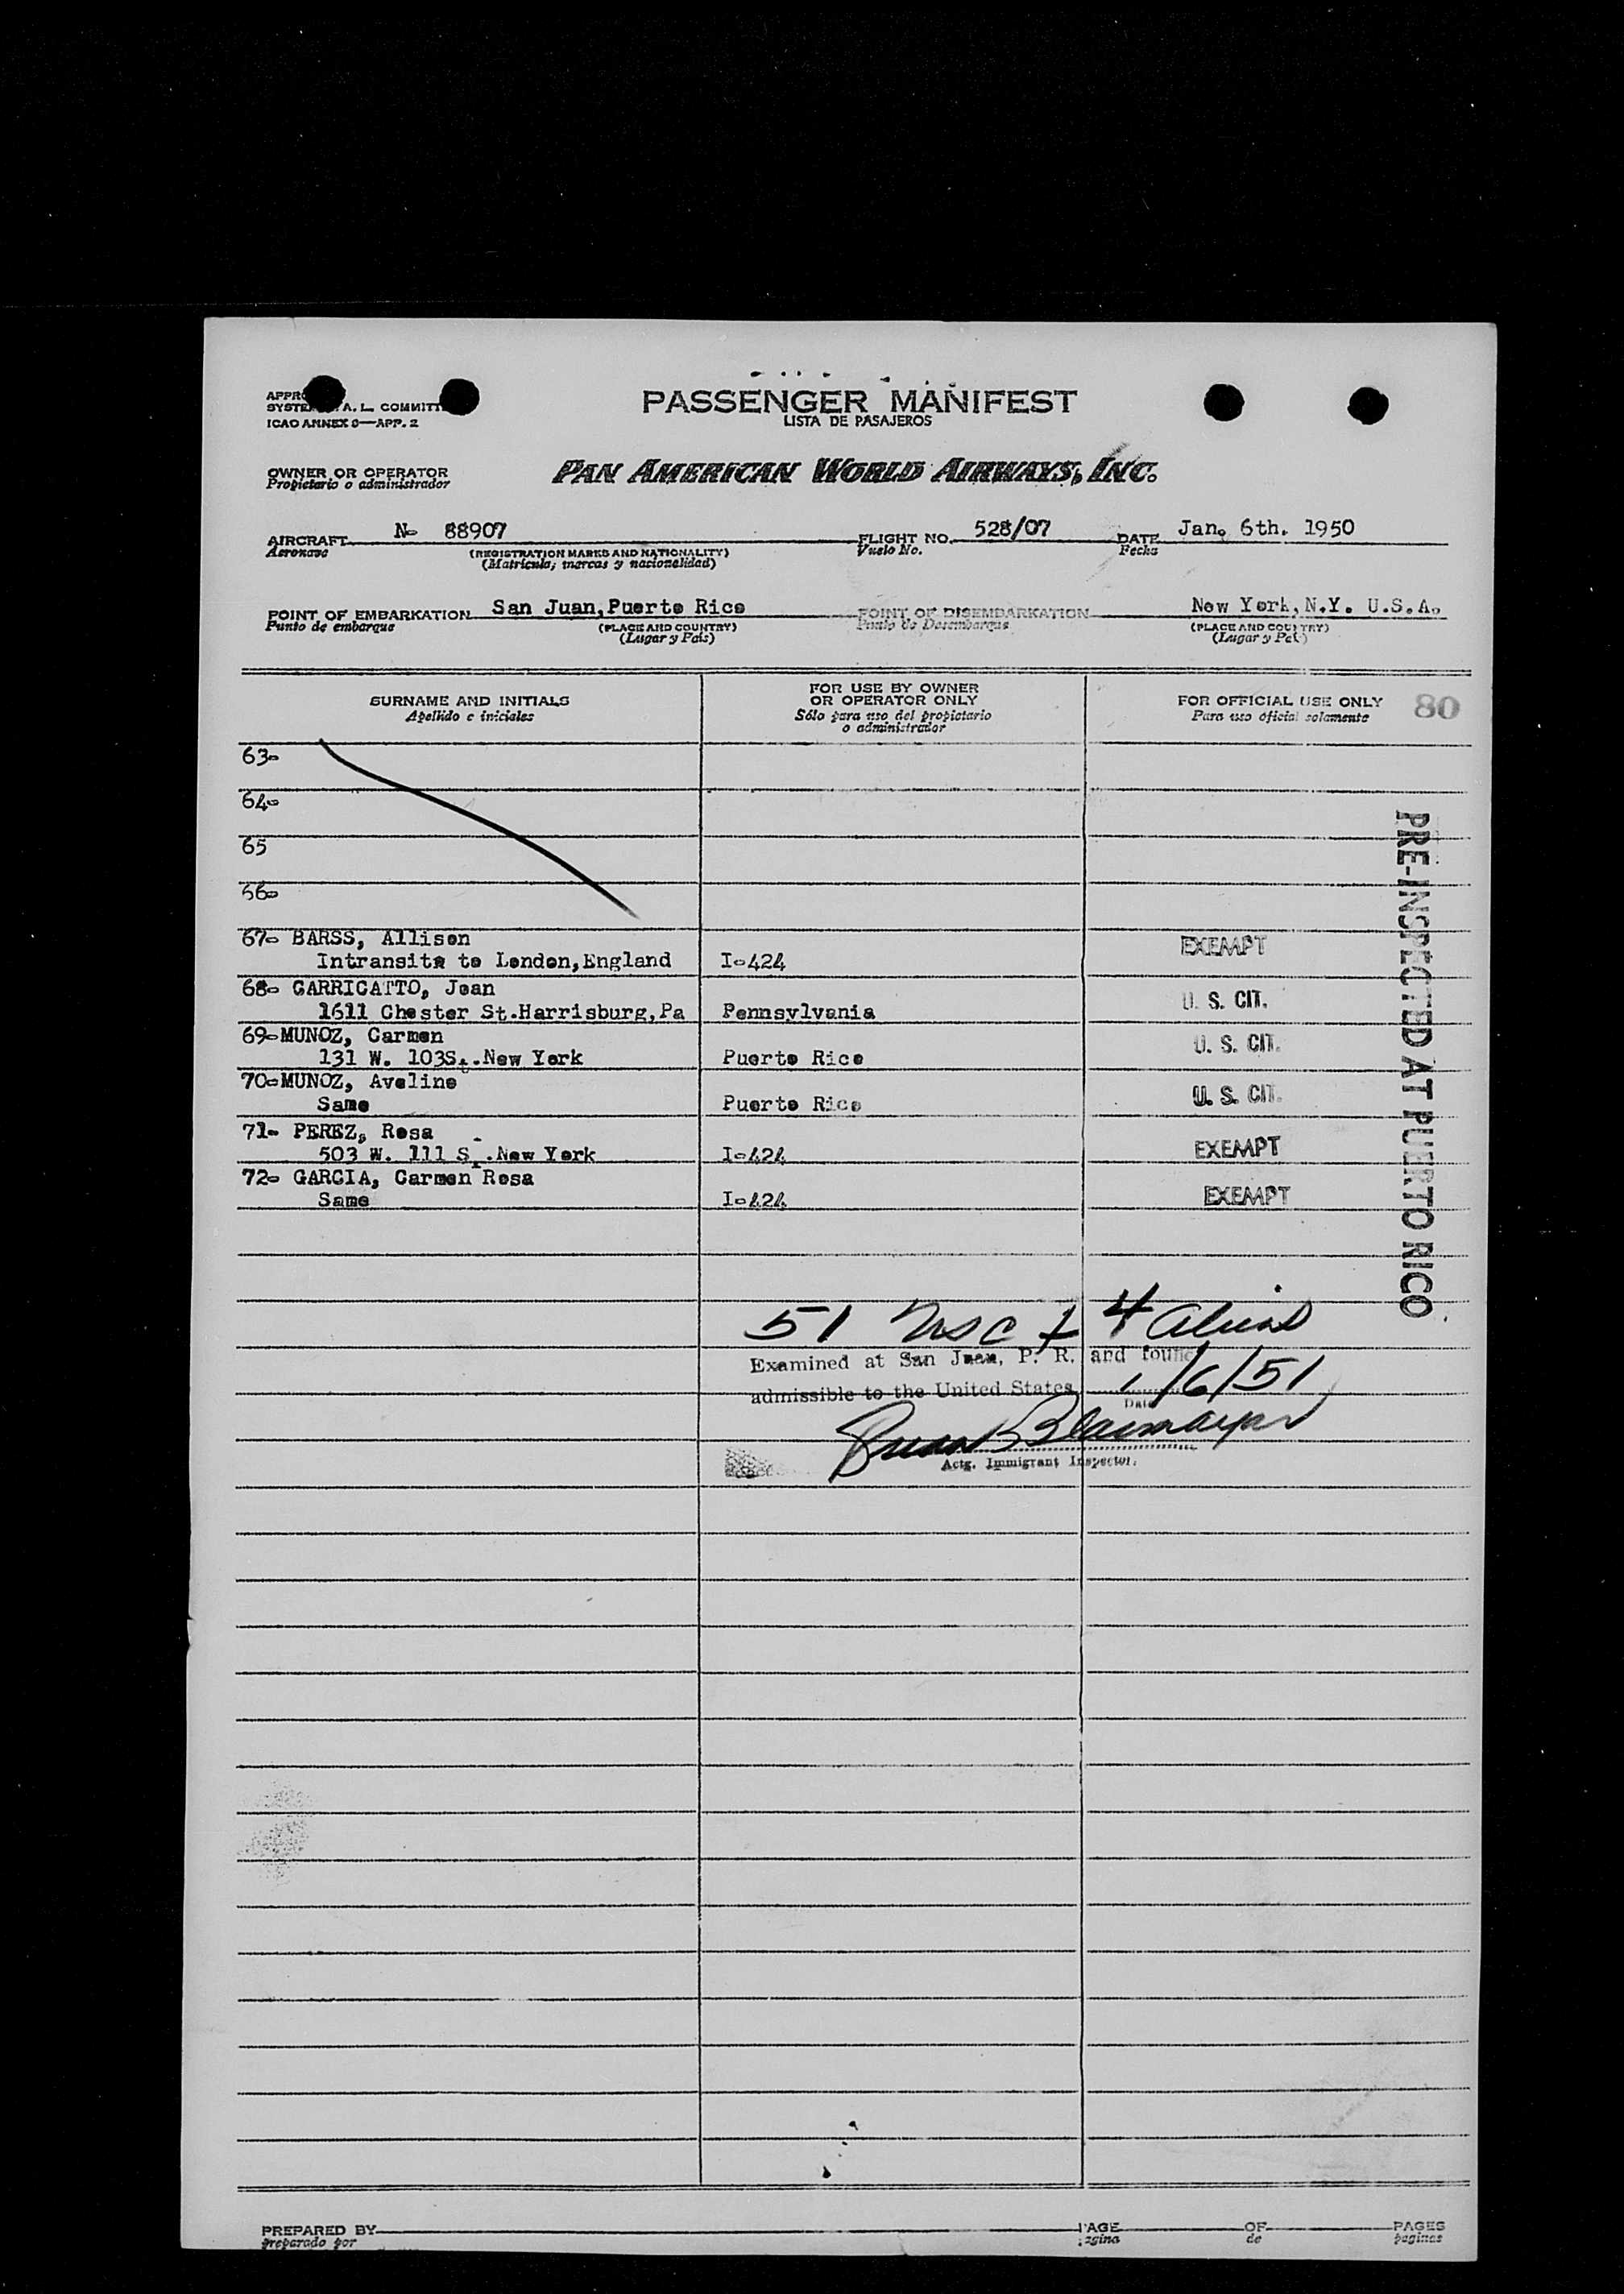 PASSENGER MANIFEST
LISTA DE PASAJEROS
A. L. COMMITT
ICAO ANNEX 9—APP. 2
OWNER OR OPERATOR
Propietario o administrador
PAN AMERICAN WORLD AIRWAYS, INC.
AIRCRAFT N- 88907 FLIGHT NO. 528/07 DATE Jan. 6th. 1950
Aeronave (REGISTRATION MARKS AND NATIONALITY) Vuelo No. Fecha
(Matrícula; marcas y nacionalidad)
POINT OF EMBARKATION San Juan, Puerto Rico POINT OF DISEMBARKATION New York, N.Y. U.S.A.
Punto de embarque (PLACE AND COUNTRY) Punto de Desembarque (PLACE AND COUNTRY)
(Lugar y País) (Lugar y País)
SURNAME AND INITIALS FOR USE BY OWNER OR OPERATOR ONLY FOR OFFICIAL USE ONLY 80
Apellido e iniciales Sólo para uso del propietario o administrador Para uso oficial solamente
63-
64-
65
66-
67- BARSS, Allison EXEMPT
Intransits to London, England I-424
68- GARRICATTO, Jean U. S. CIT.
1611 Chester St. Harrisburg, Pa Pennsylvania
69- MUNOZ, Carmen U. S. CIT.
131 W. 103St. New York Puerto Rico
70- MUNOZ, Aveline U. S. CIT.
Same Puerto Rico
71- PEREZ, Rosa EXEMPT
503 W. 111 St. New York I-424
72- GARCIA, Carmen Rosa EXEMPT
Same I-424
PRE-INSPECTED AT PUERTO RICO
51 USC + 4 Aliens
Examined at San Juan, P. R. and found
admissible to the United States 1/6/51
Date
Actg. Immigrant Inspector.
PREPARED BY PAGE OF PAGES
preparado por página de páginas